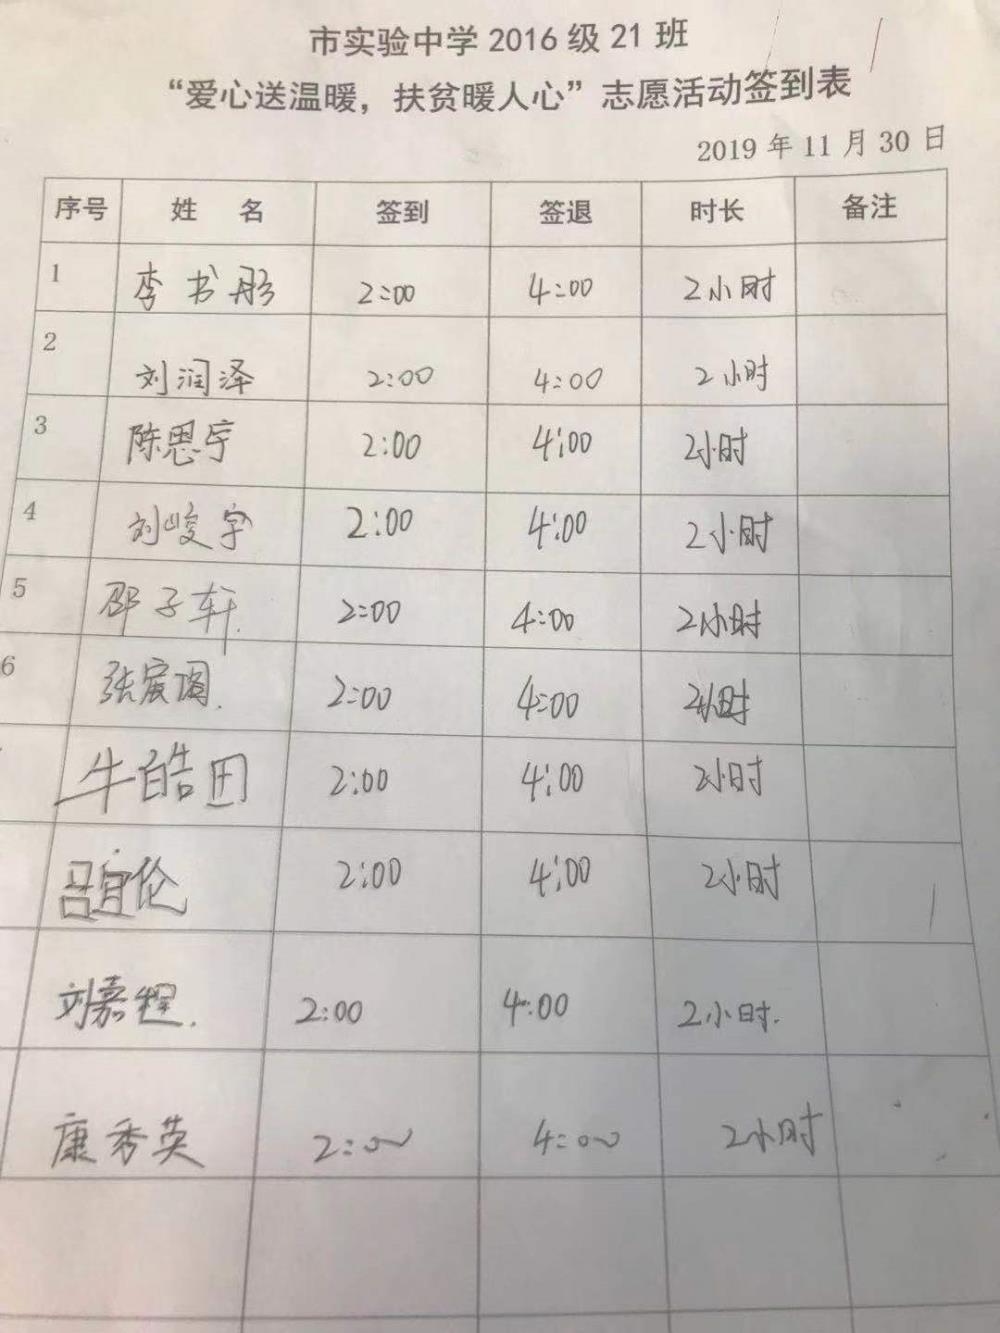 市实验中学2016级21班
“爱心送温暖，扶贫暖人心”志愿活动签到表
2019年11月30日
序号 姓 名 签到 签退 时长 备注
1 李书彤 2:00 4:00 2小时
2 刘润泽 2:00 4:00 2小时
3 陈思宇 2:00 4:00 2小时
4 刘峻宇 2:00 4:00 2小时
5 邵子轩. 2:00 4:00 2小时
6 张宸 2:00 4:00 2小时
牛皓田 2:00 4:00 2小时
吕宜伦 2:00 4:00 2小时
刘嘉程. 2:00 4:00 2小时.
康秀英 2:00 4:00 2小时